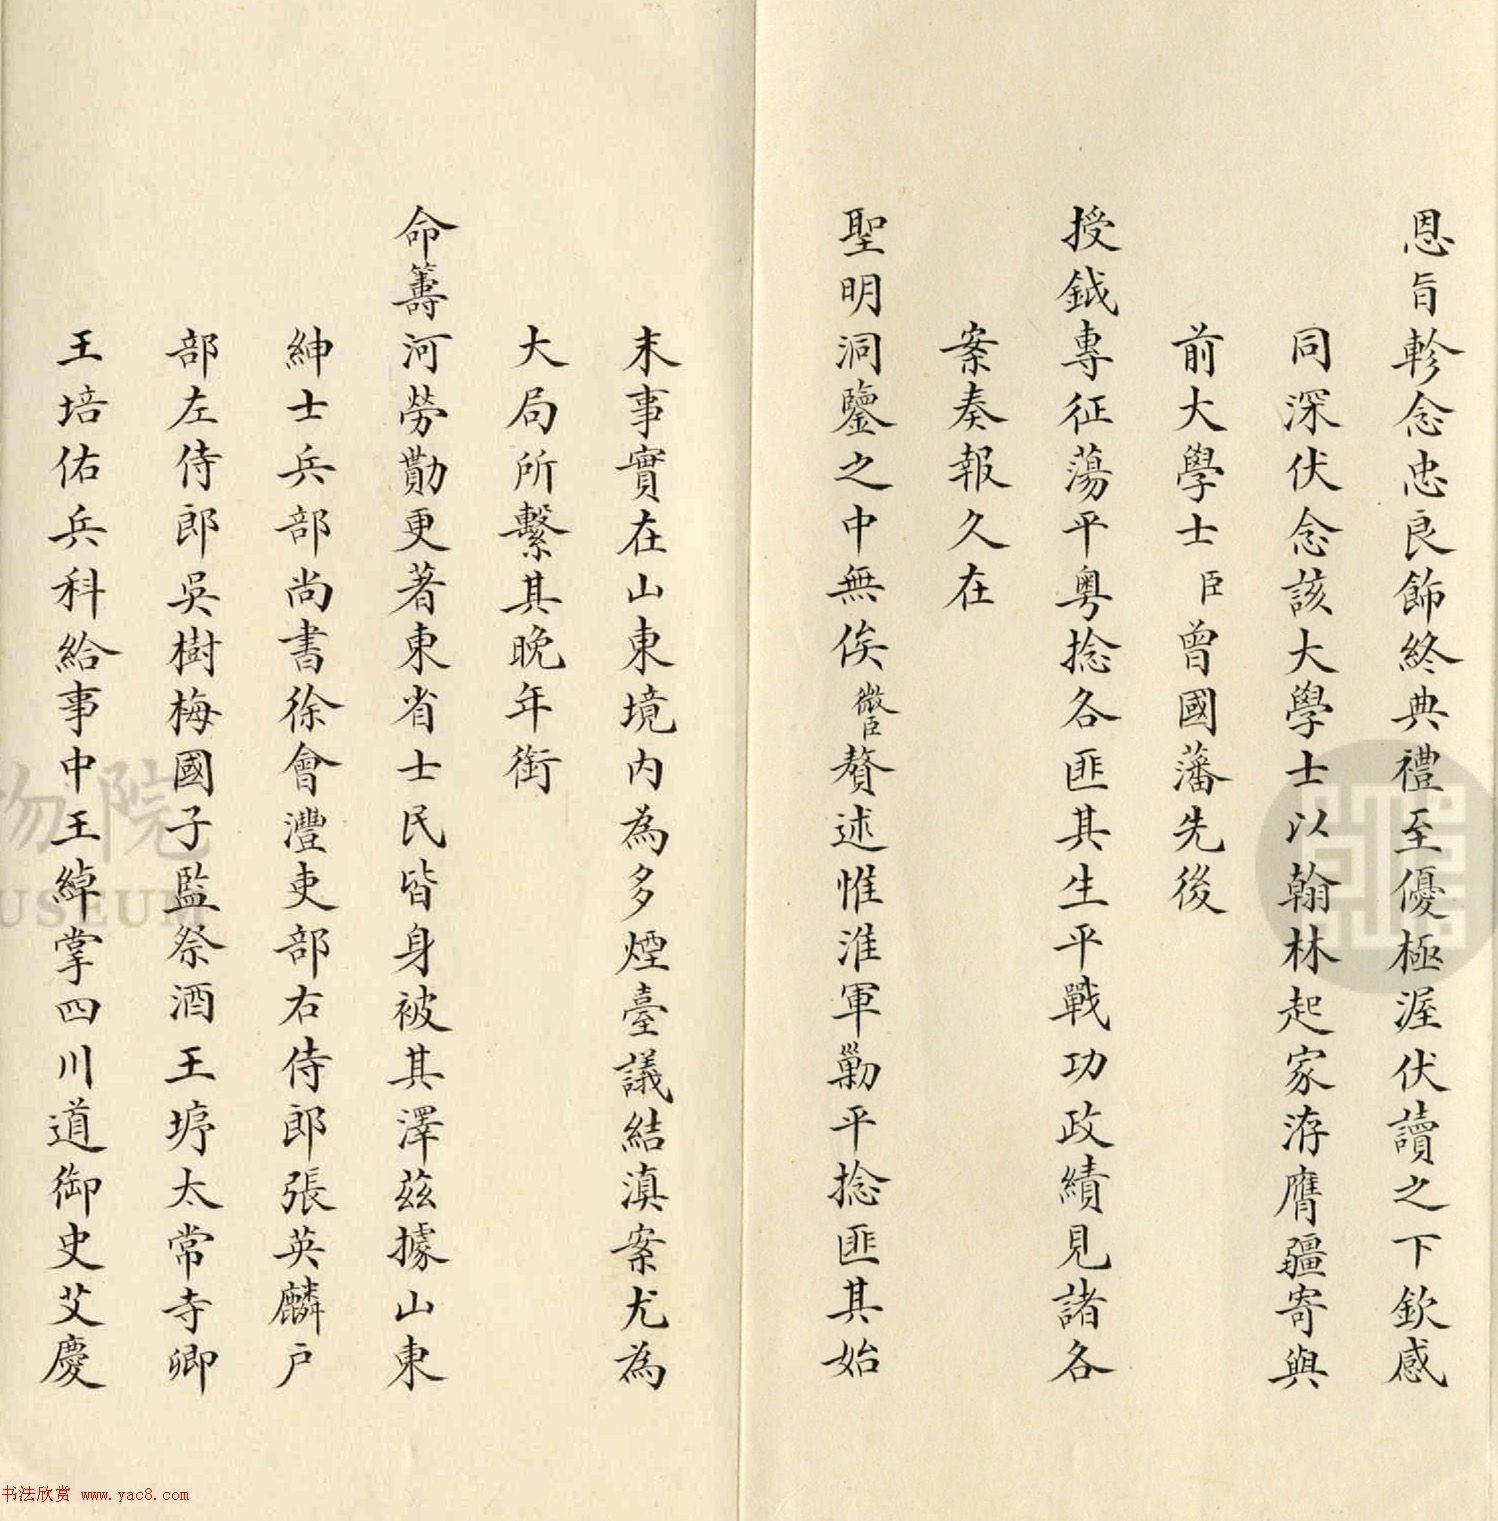 恩旨軫念忠良飾終典禮至優極渥伏讀之下欽感
同深伏念該大學士以翰林起家洊膺疆寄與
前大學士臣曾國藩先後
授鉞專征蕩平粵捻各匪其生平戰功政績見諸各
案奏報久在
聖明洞鑒之中無俟微臣贅述惟淮軍勦平捻匪其始
末事實在山東境內為多煙臺議結滇案尤為
大局所繫其晚年銜
命籌河勞勩更著東省士民皆身被其澤茲據山東
紳士兵部尚書徐會灃吏部右侍郎張英麟戶
部左侍郎吳樹梅國子監祭酒王垿太常寺卿
王培佑兵科給事中王綽掌四川道御史艾慶
物院
MUSEUM
书法欣赏 www.yac8.com